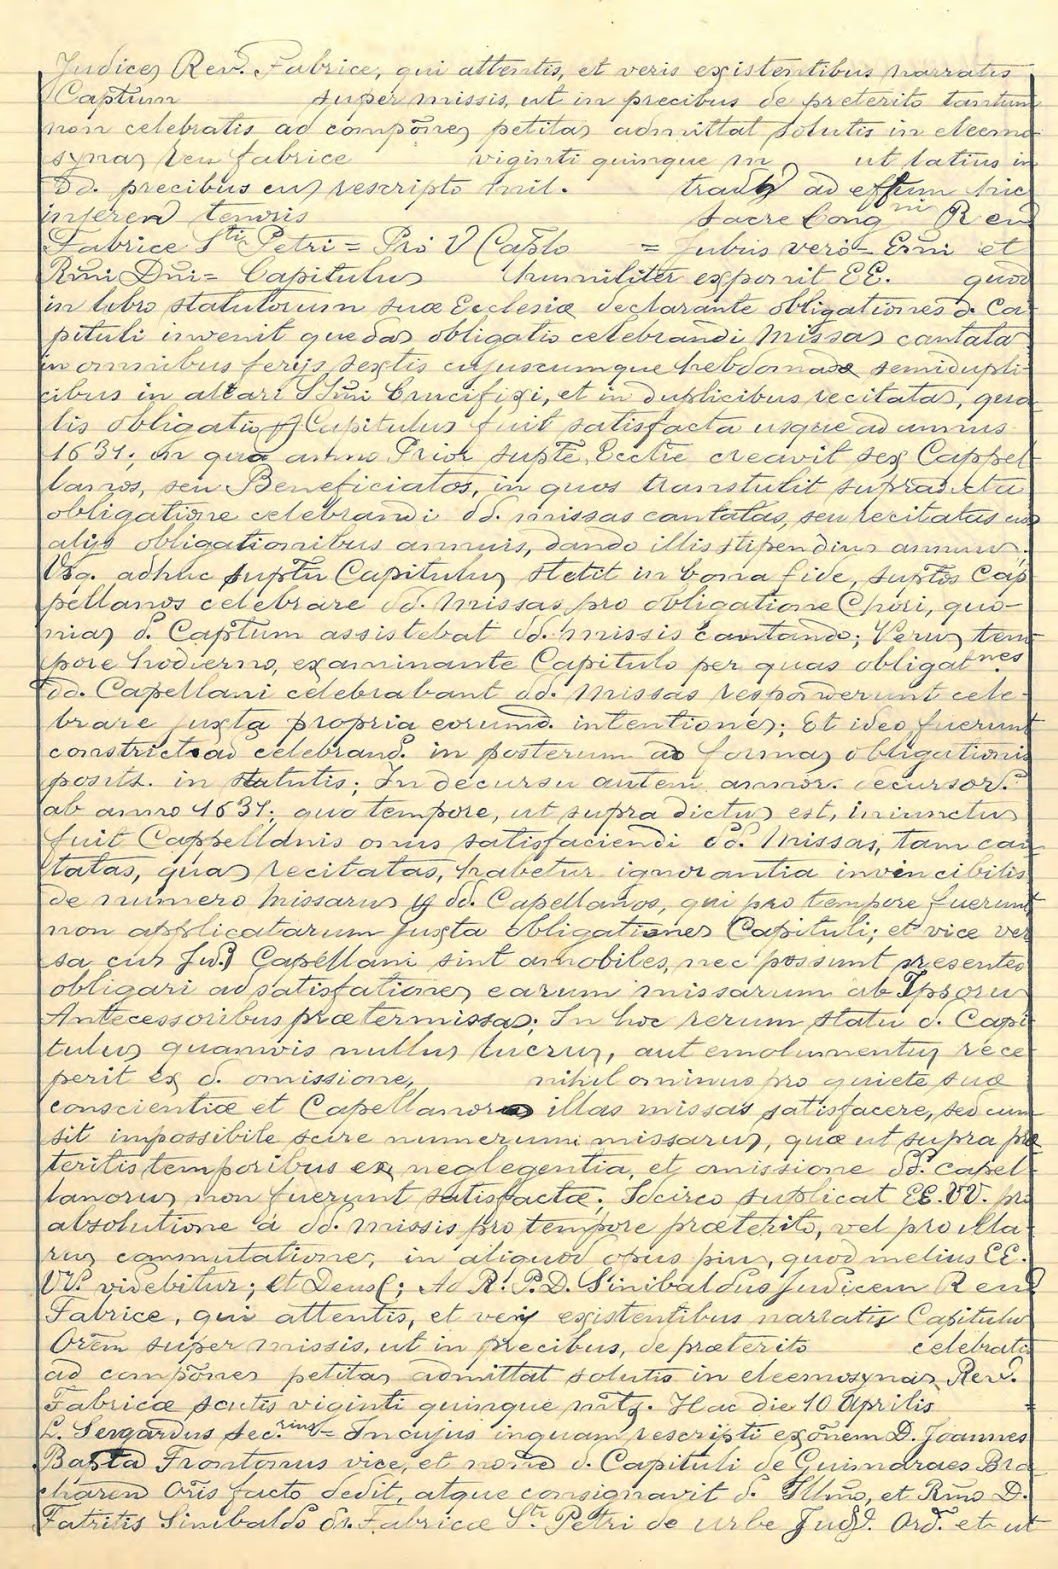 Judicez Rev. Fabrice, qui attentis, et veris existentibus narratis
Captum super missis, ut in precibus de preterito tantum
non celebratis ad compōnez petitaz admittat solutis in eleemo
synaz Rev Fabrice viginti quinque m ut latius in
Dd. precibus cuz rescripto mil. ad effum hic
inseren tenoris Sacre Cong ni Rev
Fabrice Sti Petri = Pro V Caplo = Jubus vero = Emi et
Rmi Dni = Capitulus humiliter exponit EE. quod
in libro statutorum suæ Ecclesiæ declarante obligationes d. Ca
pituli invenit quedaz obligatio celebrandi Missas cantata
in omnibus ferijs sextis cujuscumque hebdomadæ semidupli
cibus in altari SSmi Crucifixi, et in duplicibus recitataz, qua
lis obligatio Capitulus fuit satisfacta usque ad annus
1631; in quo anno Prior supte Eccliē creavit sex Cappel
lanos, seu Beneficiatos, in quos transtulit supradicta
obligatione celebrandi dd. missas cantatas, seu recitatas cuz
alijs obligationibus annuis, dando illis stipendius annuus.
Usq. adhuc suptu Capitulus stetit in bona fide, suptos Cap
pellanos celebrare dd. Missas pro obligatione Chori, quo-
niaz d. Captum assistebat dd. missis cantando; Veruz tem
pore hodierno, examinante Capitulo per quas obligatnes
dd. Capellani celebrabant dd. Missas responderunt cele-
brare juxta propria eorumd. intentiones; Et ideo fuerunt
constrict ad celebrand. in posterum ad formaz obligationis
posits. in statutis; In decursu autem annor. decursor.
ab anno 1631; quo tempore, ut supra dictuz est, iniunctus
fuit Cappellanis onus satisfaciendi dd. Missas, tam can
tatas, quaz recitatas, habetur ignorantia invincibilis
de numero Missaruz dd. Capellanos, qui pro tempore fuerunt
non applicatarum juxta obligationes Capituli; et vice ver
sa cuz Capellani sint amobiles, nec possunt presentes
obligari ad satisfationez earum missarum ab Ipsoruz
Antecessoribus prætermissaz; In hoc rerum statu d. Capi
tuluz quamvis nulluz lucruz, aut emolumentuz rece
perit ex d. omissione, nihilominus pro quiete suæ
conscientiæ et Capellanor illas missas satisfacere, sed cum
sit impossibile scire numerum missaruz, quæ ut supra præ
teritis temporibus ex neglegentia, et omissione dd. capel
lanoruz non fuerunt satisfactæ; Idcirco supplicat EE.VV. pro
absolutione à dd. missis pro tempore præterito, vel pro illa
ruz commutatione, in aliquod opus pius, quod melius EE.
VV. videbitur; et Deus; Ad R. P.D. Sinibaldus Judicem Rev
Fabrice, qui attentis, et veris existentibus narratis Capitulu
Orem super missis, ut in precibus, de præterito celebrata
ad compōnes petitaz admittat solutis in eleemosynaz Rev.
Fabricæ scutis viginti quinque mtz. Hac die 10 Aprilis
L. Sergardus Sec.rius = In cujus inquam rescripti exōnem D. Joannes
Basta Frontonus vice, et noīe d. Capituli de Guimaraes Bra
charen Oris facto dedit, atque consignavit d. Illmo, et Rmo D.
Fatritis Sinibaldo d. Fabricæ Sti Petri de urbe Jud. Ord. et ut